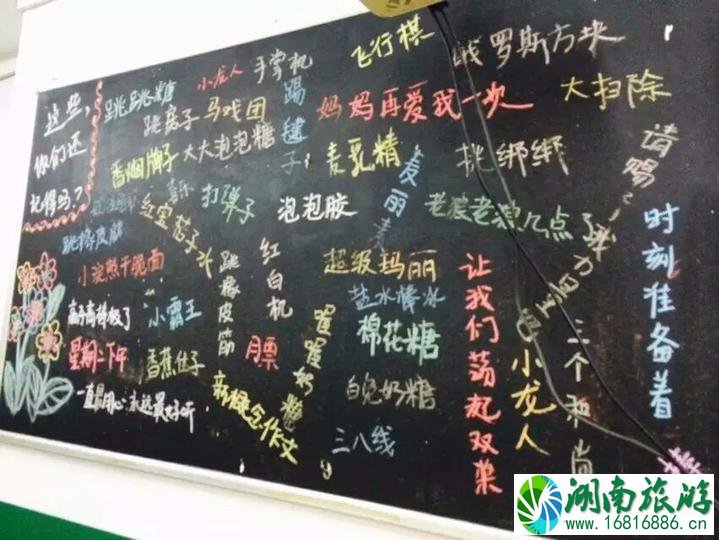 这些,
你们还
记得吗?
跳跳糖
小龙人
手掌机
飞行棋
俄罗斯方块
大扫除
跳房子
马戏团
踢毽子
妈妈再爱我一次
请赐
香烟牌子
大大泡泡糖
麦乳精
麦丽素
挑绑绑
时刻准备着
打弹子
泡泡胶
老狼老狼几点了
跳橡皮筋
红白机
超级玛丽
让我们荡起双桨
小浣熊干脆面
盐水棒冰
小霸王
棉花糖
三个和尚
星期二下午
香蕉住子
月票
喔喔奶糖
小龙人
一直用心永远最好听
新概念作文
白兔奶糖
三八线
湖南旅游
www.16816886.cn